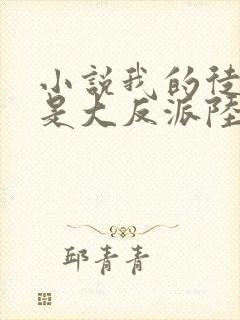 小說我的徒
是大反派陸
邱青青